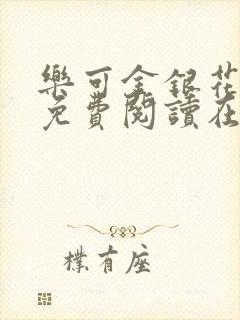 樂可金銀花
免費閱讀在
樸有座